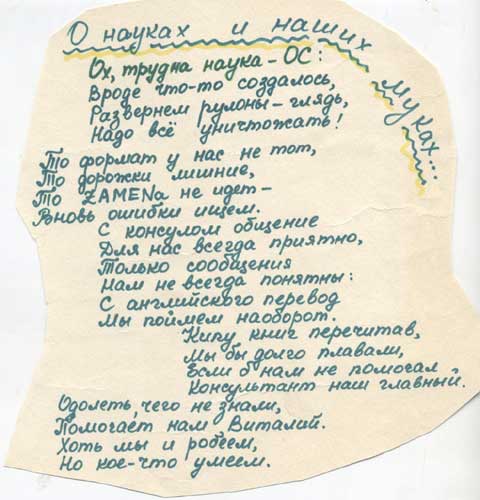 О науках и наших муках...
Ох, трудна наука - ОС:
Вроде что-то создалось,
Развернем рулоны - глядь,
Надо всё уничтожать!
То формат у нас не тот,
То дорожки лишние,
То ZAMENa не идет -
Вновь ошибки ищем.
С консулом общение
Для нас всегда приятно,
Только сообщения
Нам не всегда понятны:
С английского перевод
Мы поймем наоборот.
Кипу книг перечитав,
Мы бы долго плавали,
Если б нам не помогал
Консультант наш главный.
Одолеть, чего не знали,
Помогает нам Виталий.
Хоть мы и робеем,
Но кое-что умеем.